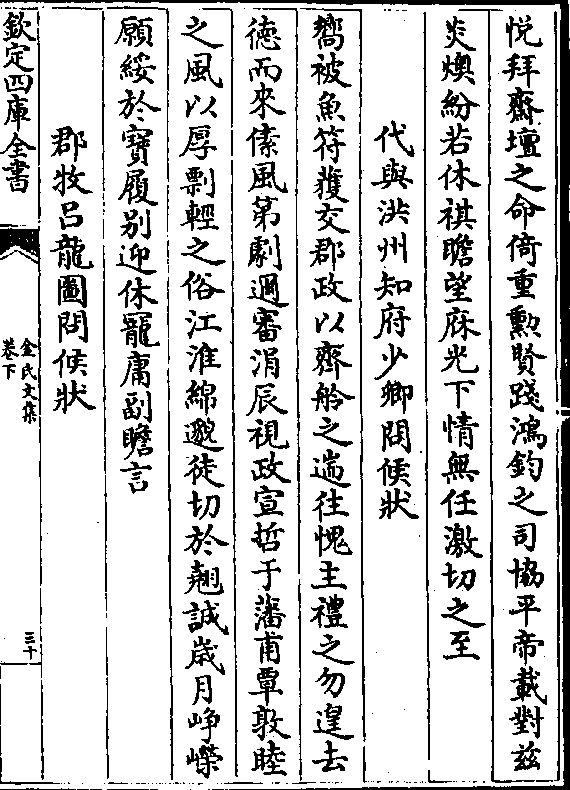 悦拜齋壇之命倚重勲賢踐鴻鈞之司協平帝載對兹
炎燠紛若休祺瞻望庥光下情無任激切之至
代與洪州知府少卿問候狀
嚮被魚符獲交郡政以齊舲之遄往愧主禮之勿遑去
德而來傃風第劇週審涓辰視政宣哲于藩甫覃敦睦
之風以厚剽輕之俗江淮綿邈徒切於翹誠歳月崢嶸
願綏於寶履别迎休寵庸副瞻言
郡牧吕龍圖問候狀
欽定四庫全書
金氏文集
卷下
三十